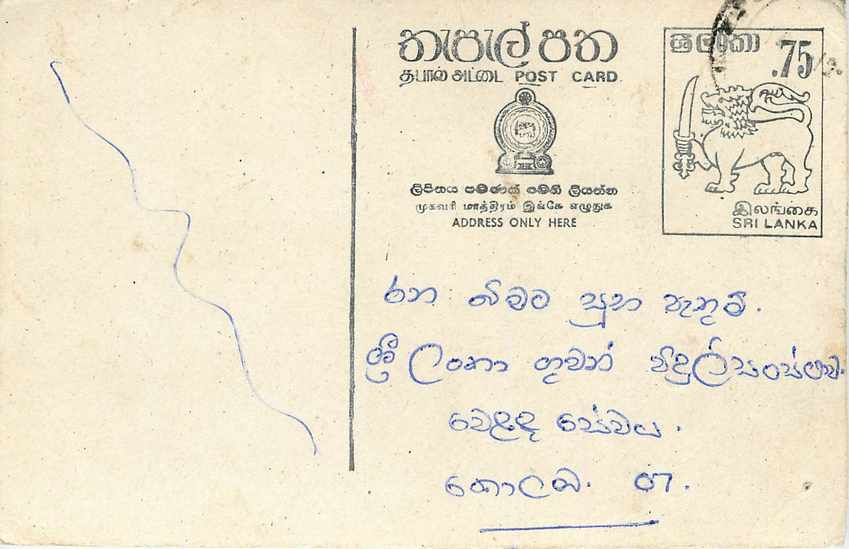 තැපැල් පත
தபால் அட்டை POST CARD
ශ්‍රී ලංකා
.75
ලිපිනය පමණක් මෙහි ලියන්න
முகவரி மாத்திரம் இங்கே எழுதுக
ADDRESS ONLY HERE
இலங்கை
SRI LANKA
රන බිමට සුභ පැතුම්.
ශ්‍රී ලංකා ගුවන් විදුලි සංස්ථාව.
වෙළඳ සේවය.
කොලඹ. 07.